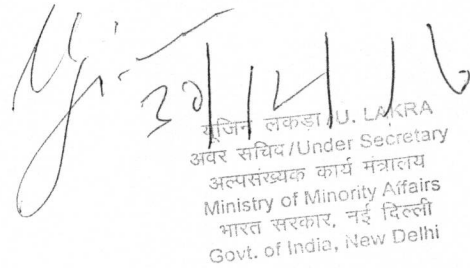 30/12/16
यूजिन लकड़ा/U. LAKRA
अवर सचिव/Under Secretary
अल्पसंख्यक कार्य मंत्रालय
Ministry of Minority Affairs
भारत सरकार, नई दिल्ली
Govt. of India, New Delhi